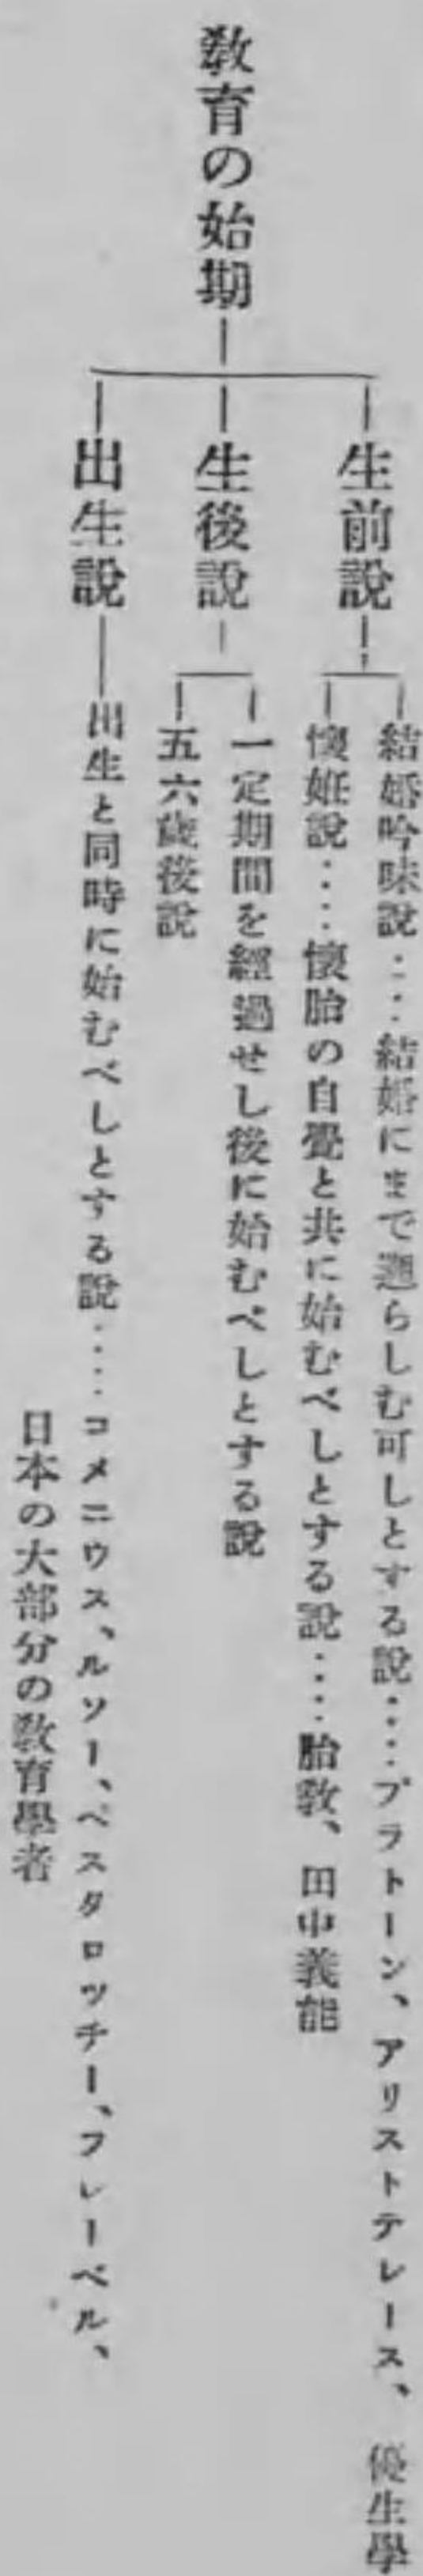 敎育の始期
生前說
結婚吟味說‥‥結婚にまで遡らしむ可しとする說‥‥プラトーン、アリストテレース、優生學
懷姙說‥‥懷胎の自覺と共に始むべしとする說‥‥胎敎、田中義能
生後說
一定期間を經過せし後に始むべしとする說
五六歲後說
出生說
出生と同時に始むべしとする說‥‥コメニウス、ルソー、ペスタロッチー、フレーベル、
日本の大部分の敎育學者